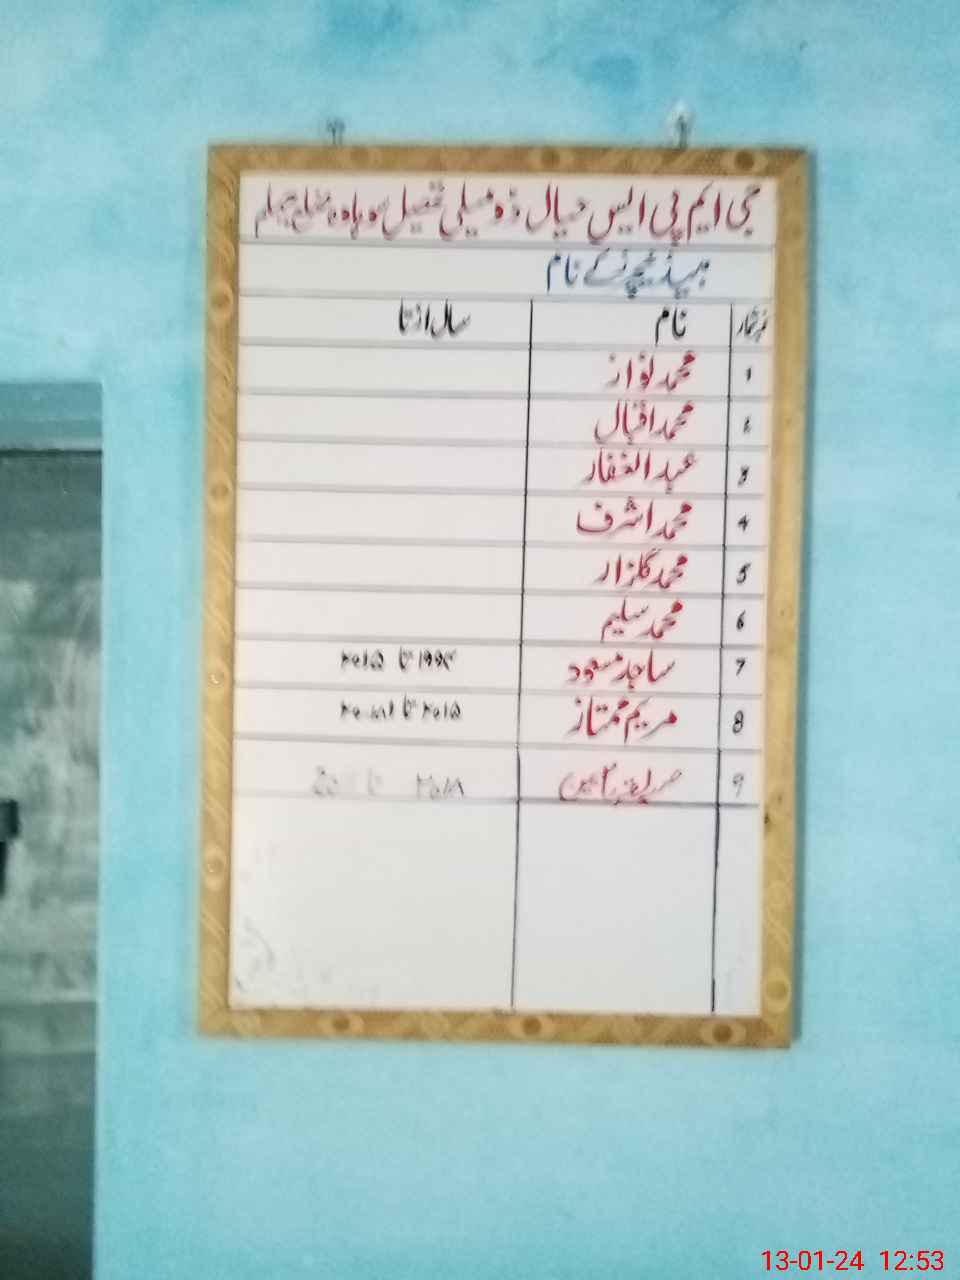 جی ایم پی ایس سیال ڈومیلی تحصیل سوہاوہ ضلع جہلم
ہیڈ ٹیچرز کے نام
نمبر شمار نام سال از تا
1 محمد نواز
2 محمد اقبال
3 عبد الغفار
4 محمد اشرف
5 محمد گلزار
6 محمد سلیم
7 ساجد مسعود ۱۹۹۴ تا ۲۰۱۵
8 مریم ممتاز ۲۰۱۵ تا ۲۰۱۸
9 ۲۰۱۸ تا
13-01-24 12:53